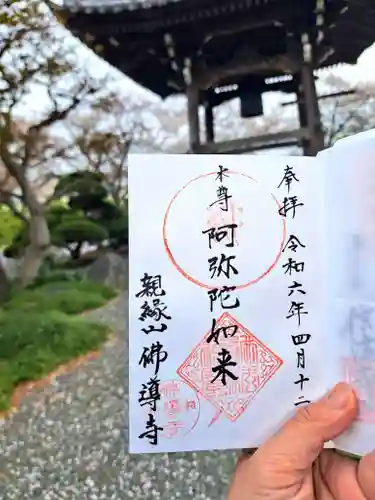 奉拝 令和六年四月十二
本尊 阿弥陀如来
親縁山佛導寺